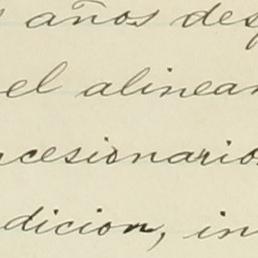 s años desp
el alinear
ncesionario
dicion, in